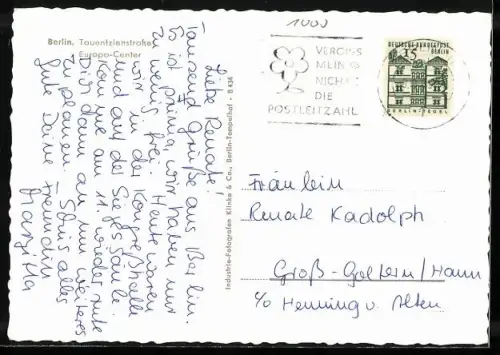 1000
Berlin, Tauentzienstraße
Europa-Center
Liebe Renate!
Tausend Grüße aus Berlin.
Es ist prima, wir haben nur
zu wenig frei. Heute waren
wir in der Kongreßhalle
und auf der Siegessäule.
Komme am 11. wieder, rufe
Dich dann an, um weiteres
zu planen. Sonst alles
Gute Deine Freundin
Margitta
Industrie-Fotografen Klinke & Co., Berlin-Tempelhof · B 434
VERGISS
MEIN
NICHT
DIE
POSTLEITZAHL
DEUTSCHE BUNDESPOST
BERLIN
15
BERLIN-TEGEL
Fräulein
Renate Kadolph
Groß-Goltern/Hann
c/o Henning v. Alten